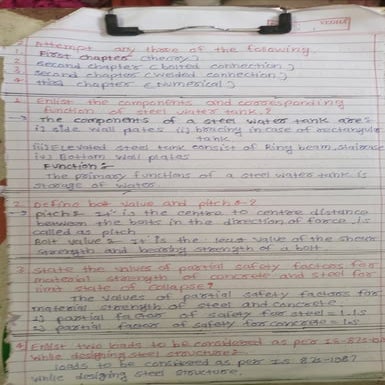 Attempt any three of the following.
1. First chapter (theory)
2. second chapter (bolted connection)
3. second chapter (welded connection)
4. third chapter (Numerical)
1. Enlist the components and corresponding
function of steel water tank.?
→ The components of a steel water tank are:
i) side wall plates ii) bracing in case of rectangular
tank
iii) Elevated steel tank consist of Ring beam, staircase
iv) Bottom wall plates
Function:-
The primary functions of a steel water tank is
storage of water.
2. Define bolt value and pitch?
→ pitch:- It is the centre to centre distance
between the bolts in the direction of force is
called as pitch
Bolt value:- It is the least value of the shear
strength and bearing strength of a bolt.
3. State the values of partial safety factors for
material strength of concrete and steel for
limit state of collapse?
The values of partial safety factors for
material strength of steel and concrete.
1) partial factor of safety for steel = 1.15
2) partial factor of safety for concrete = 1.5
4. Enlist two loads to be considered as per IS-875-
while designing steel structure?
loads to be considered as per IS 875-1987
while designing steel structure.